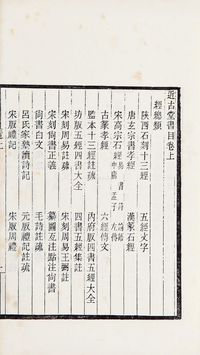 近古堂書目卷上
經總類
陝西石刻十三經 五經文字
唐玄宗書孝經 漢篆石經
宋高宗石經 易 書 詩 論語 中庸 孟子 左傳
古篆孝經 六經 文
監本十三經註疏 內府版四書五經大全
坊版五經四書大全 四書五經集註
宋刻周易註疏 宋刻周易王弼註
宋刻尚書正義 纂圖互注點注尚書
尚書白文 毛詩註疏
呂氏家塾讀詩記 元版禮記註疏
宋版禮記 宋版周禮